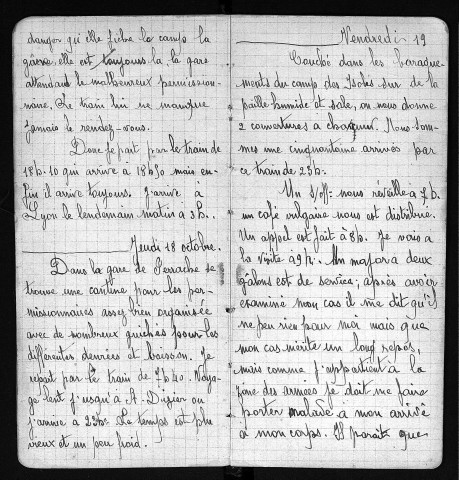 danger qu'elle fiche le camp la
guerre elle est toujours la, la gare
attendant le malheureux permission-
naire. Le train lui ne manque
jamais le rendez-vous.
Donc je part par le train de
18h-10 qui arrive a 18h50 mais en-
fin il arrive toujours. J'arrive à
Lyon le lendemain matin à 3h.
Jeudi 18 octobre.
Dans la gare de Perrache se
trouve une cantine pour les per-
missionnaires assez bien organisée
avec de nombreux guichés pour les
différentes denrées et boisson. Je
repart par le train de 7h40. Voya-
ge lent j'usqu'à St. Dizier ou
j'arrive a 23h. Le temps est plu
vieux et un peu froid.
Vendredi 19
Couché dans les baraque-
ments du camp des Isoles sur de la
paille humide et sale, on nous donne
2 couvertures a chaqun. Nous som-
mes une cinquantaine arrivés par
ce train de 23h.
Un s/off. nous réveille a 7h.
un café vulgaire nous est distribué.
Un appel est fait à 8h. Je vais a
la visite a 9h. Un major a deux
galons est de service; après avoir
examiné mon cas il me dit qu'il
ne peu rien pour moi mais que
mon cas mérite un long repos,
mais comme j'appartient à la
zone des armées je doit me faire
porter malade a mon arrivé
a mon corps. Il parait que